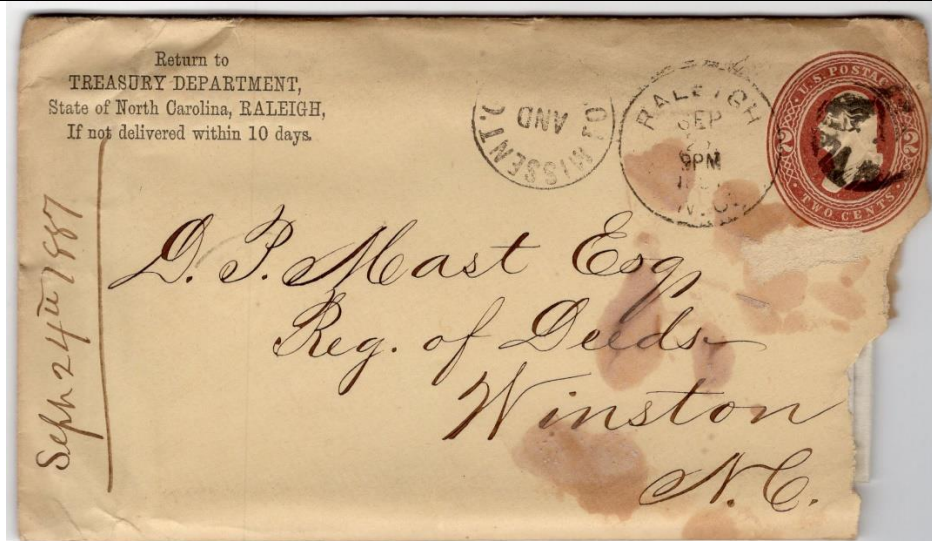 Return to
TREASURY DEPARTMENT,
State of North Carolina, RALEIGH,
If not delivered within 10 days.
MISSENT
AND
RALEIGH
SEP
9PM
N.C.
U.S. POSTAGE
2 2
TWO CENTS
Sept 24th 1887
D. P. Mast Esq
Reg. of Deeds
Winston
N.C.